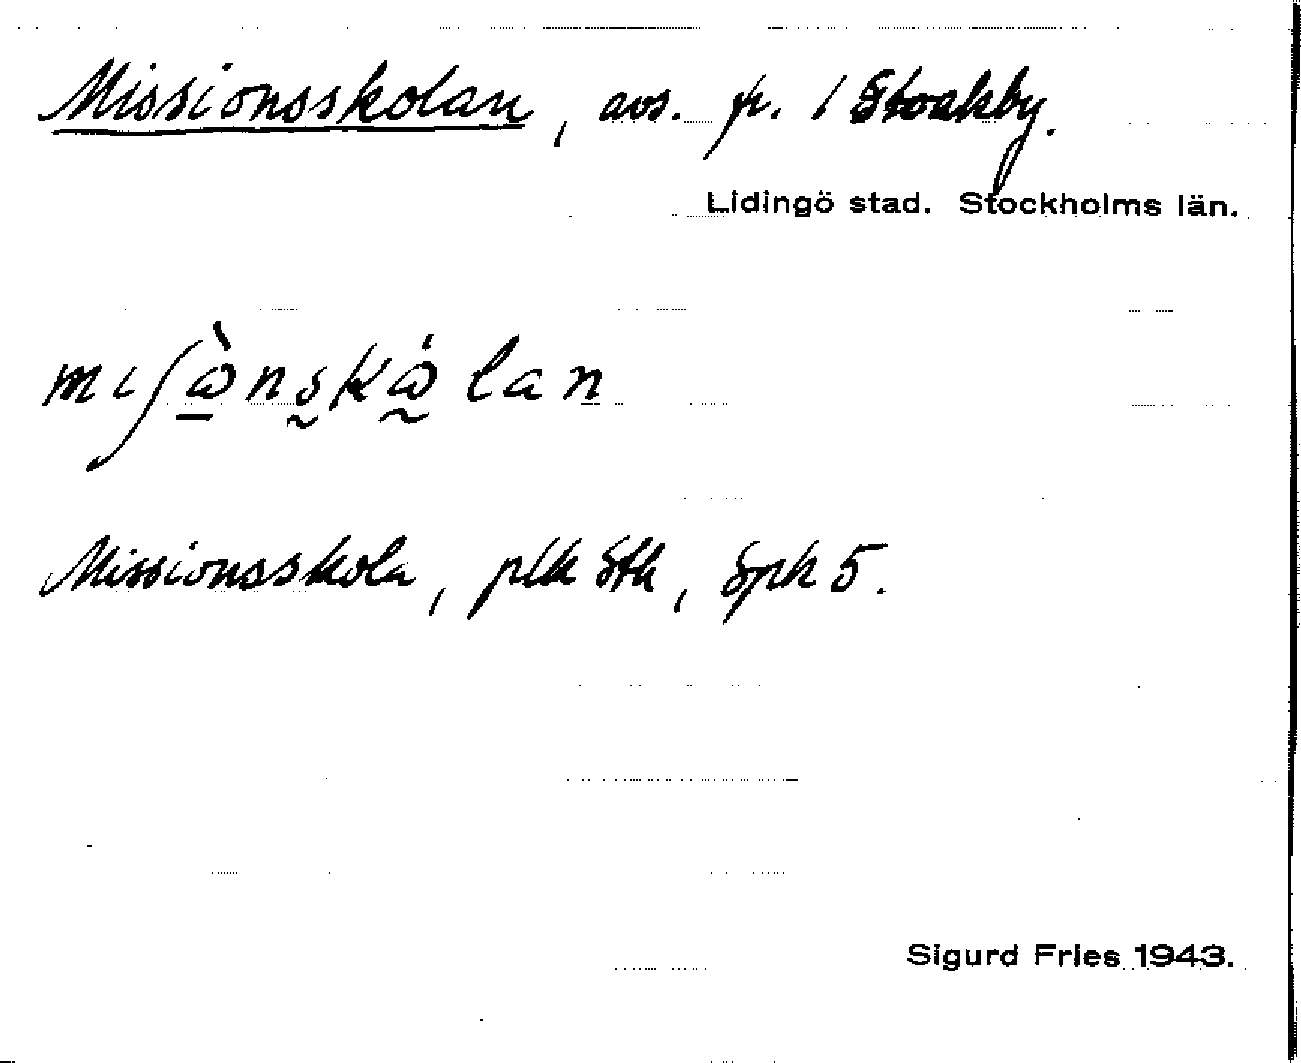 Missionsskolan, avs. fr. 1 Stockby.
Lidingö stad. Stockholms län.
Missionsskola, plk öth, öpk 5.
Sigurd Fries 1943.